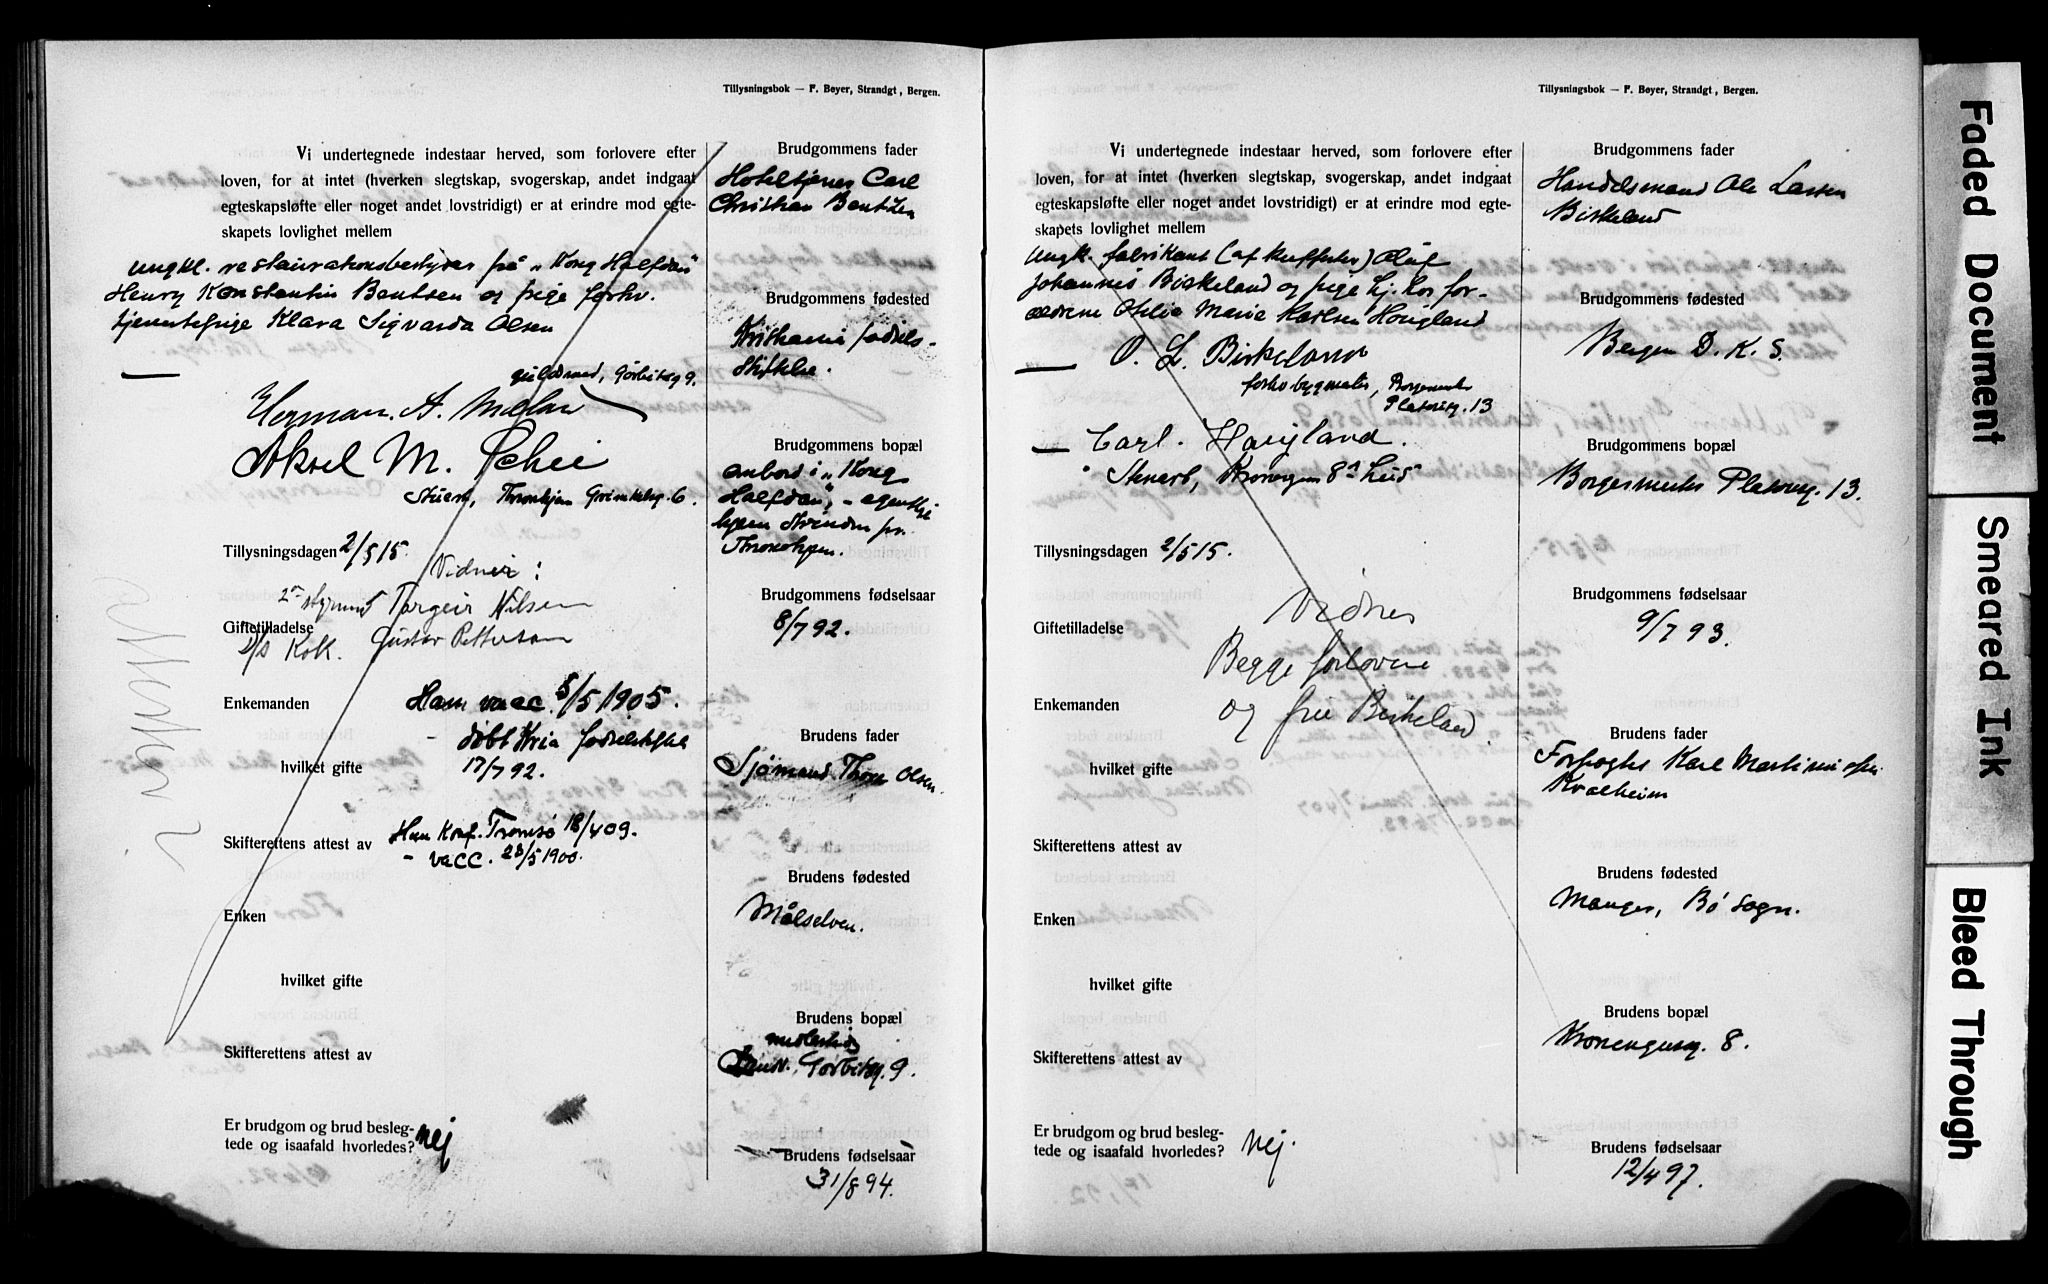 Tillysningsbok — F. Bøyer, Strandgt, Bergen.
Vi undertegnede indestaar herved, som forlovere efter
loven, for at intet (hverken slegtskap, svogerskap, andet indgaat
egteskapsløfte eller noget andet lovstridigt) er at erindre mod egte-
skapets lovlighet mellem
ungkl. restaurationsbestyrer på "Kong Halfdan"
Henry Konstantin Bentsen og pige forhv.
tjenestepige Klara Sigvarda Olsen
guldsmed, 9.
Herman. A.
Aksel M. Schei
Stuert, Trondhjem 6.
Tillysningsdagen 2/5 15.
Vidner:
2den styrmand Torgeir Nilsen
Giftetilladelse
D/S Kok. Gustav Pettersen
Enkemanden
Han vacc. 5/5 1905.
- døbt Kria fødselsst.
hvilket gifte
17/7 92.
Skifterettens attest av
Hun konf. Tromsø 18/4 09.
- vacc. 23/5 1900.
Enken
hvilket gifte
Skifterettens attest av
Er brudgom og brud besleg-
tede og isaafald hvorledes? nej
Brudgommens fader
Hoteltjener Carl
Christian Bentzen
Brudgommens fødested
Kristiania fødsels-
stiftelse.
Brudgommens bopæl
ombord i "Kong
Halfdan", - egentlig
hjem Strinden pr.
Trondhjem.
Brudgommens fødselsaar
8/7 92.
Brudens fader
Sjømand Thom Olsen.
Brudens fødested
Målselven.
Brudens bopæl
midlertidig
9.
Brudens fødselsaar
31/8 94.
Tillysningsbok — F. Bøyer, Strandgt, Bergen.
Vi undertegnede indestaar herved, som forlovere efter
loven, for at intet (hverken slegtskap, svogerskap, andet indgaat
egteskapsløfte eller noget andet lovstridigt) er at erindre mod egte-
skapets lovlighet mellem
ungk. fabrikant (af kufferter) Oluf
Johannes Birkeland og pige hj. hos for-
ældrene Otilie Marie Karlsen Hougland
O. L. Birkeland
forhv bygmester, Borgermester
Platousg. 13
Carl. Haugland.
Stuert, Kroneng 8
Tillysningsdagen 2/5 15.
Vidner
Giftetilladelse
Begge forlovere
Enkemanden
og frue Birkeland.
hvilket gifte
Skifterettens attest av
Enken
hvilket gifte
Skifterettens attest av
Er brudgom og brud besleg-
tede og isaafald hvorledes? nej.
Brudgommens fader
Handelsmand Ole Larsen
Birkeland
Brudgommens fødested
Bergen D. K. S.
Brudgommens bopæl
Borgermester Platousg. 13.
Brudgommens fødselsaar
9/7 93.
Brudens fader
Karl Martinius
Kvalheim
Brudens fødested
Manger, Bø sogn.
Brudens bopæl
Kronengsg. 8.
Brudens fødselsaar
12/4 97.
Faded Document
Smeared Ink
Bleed Through